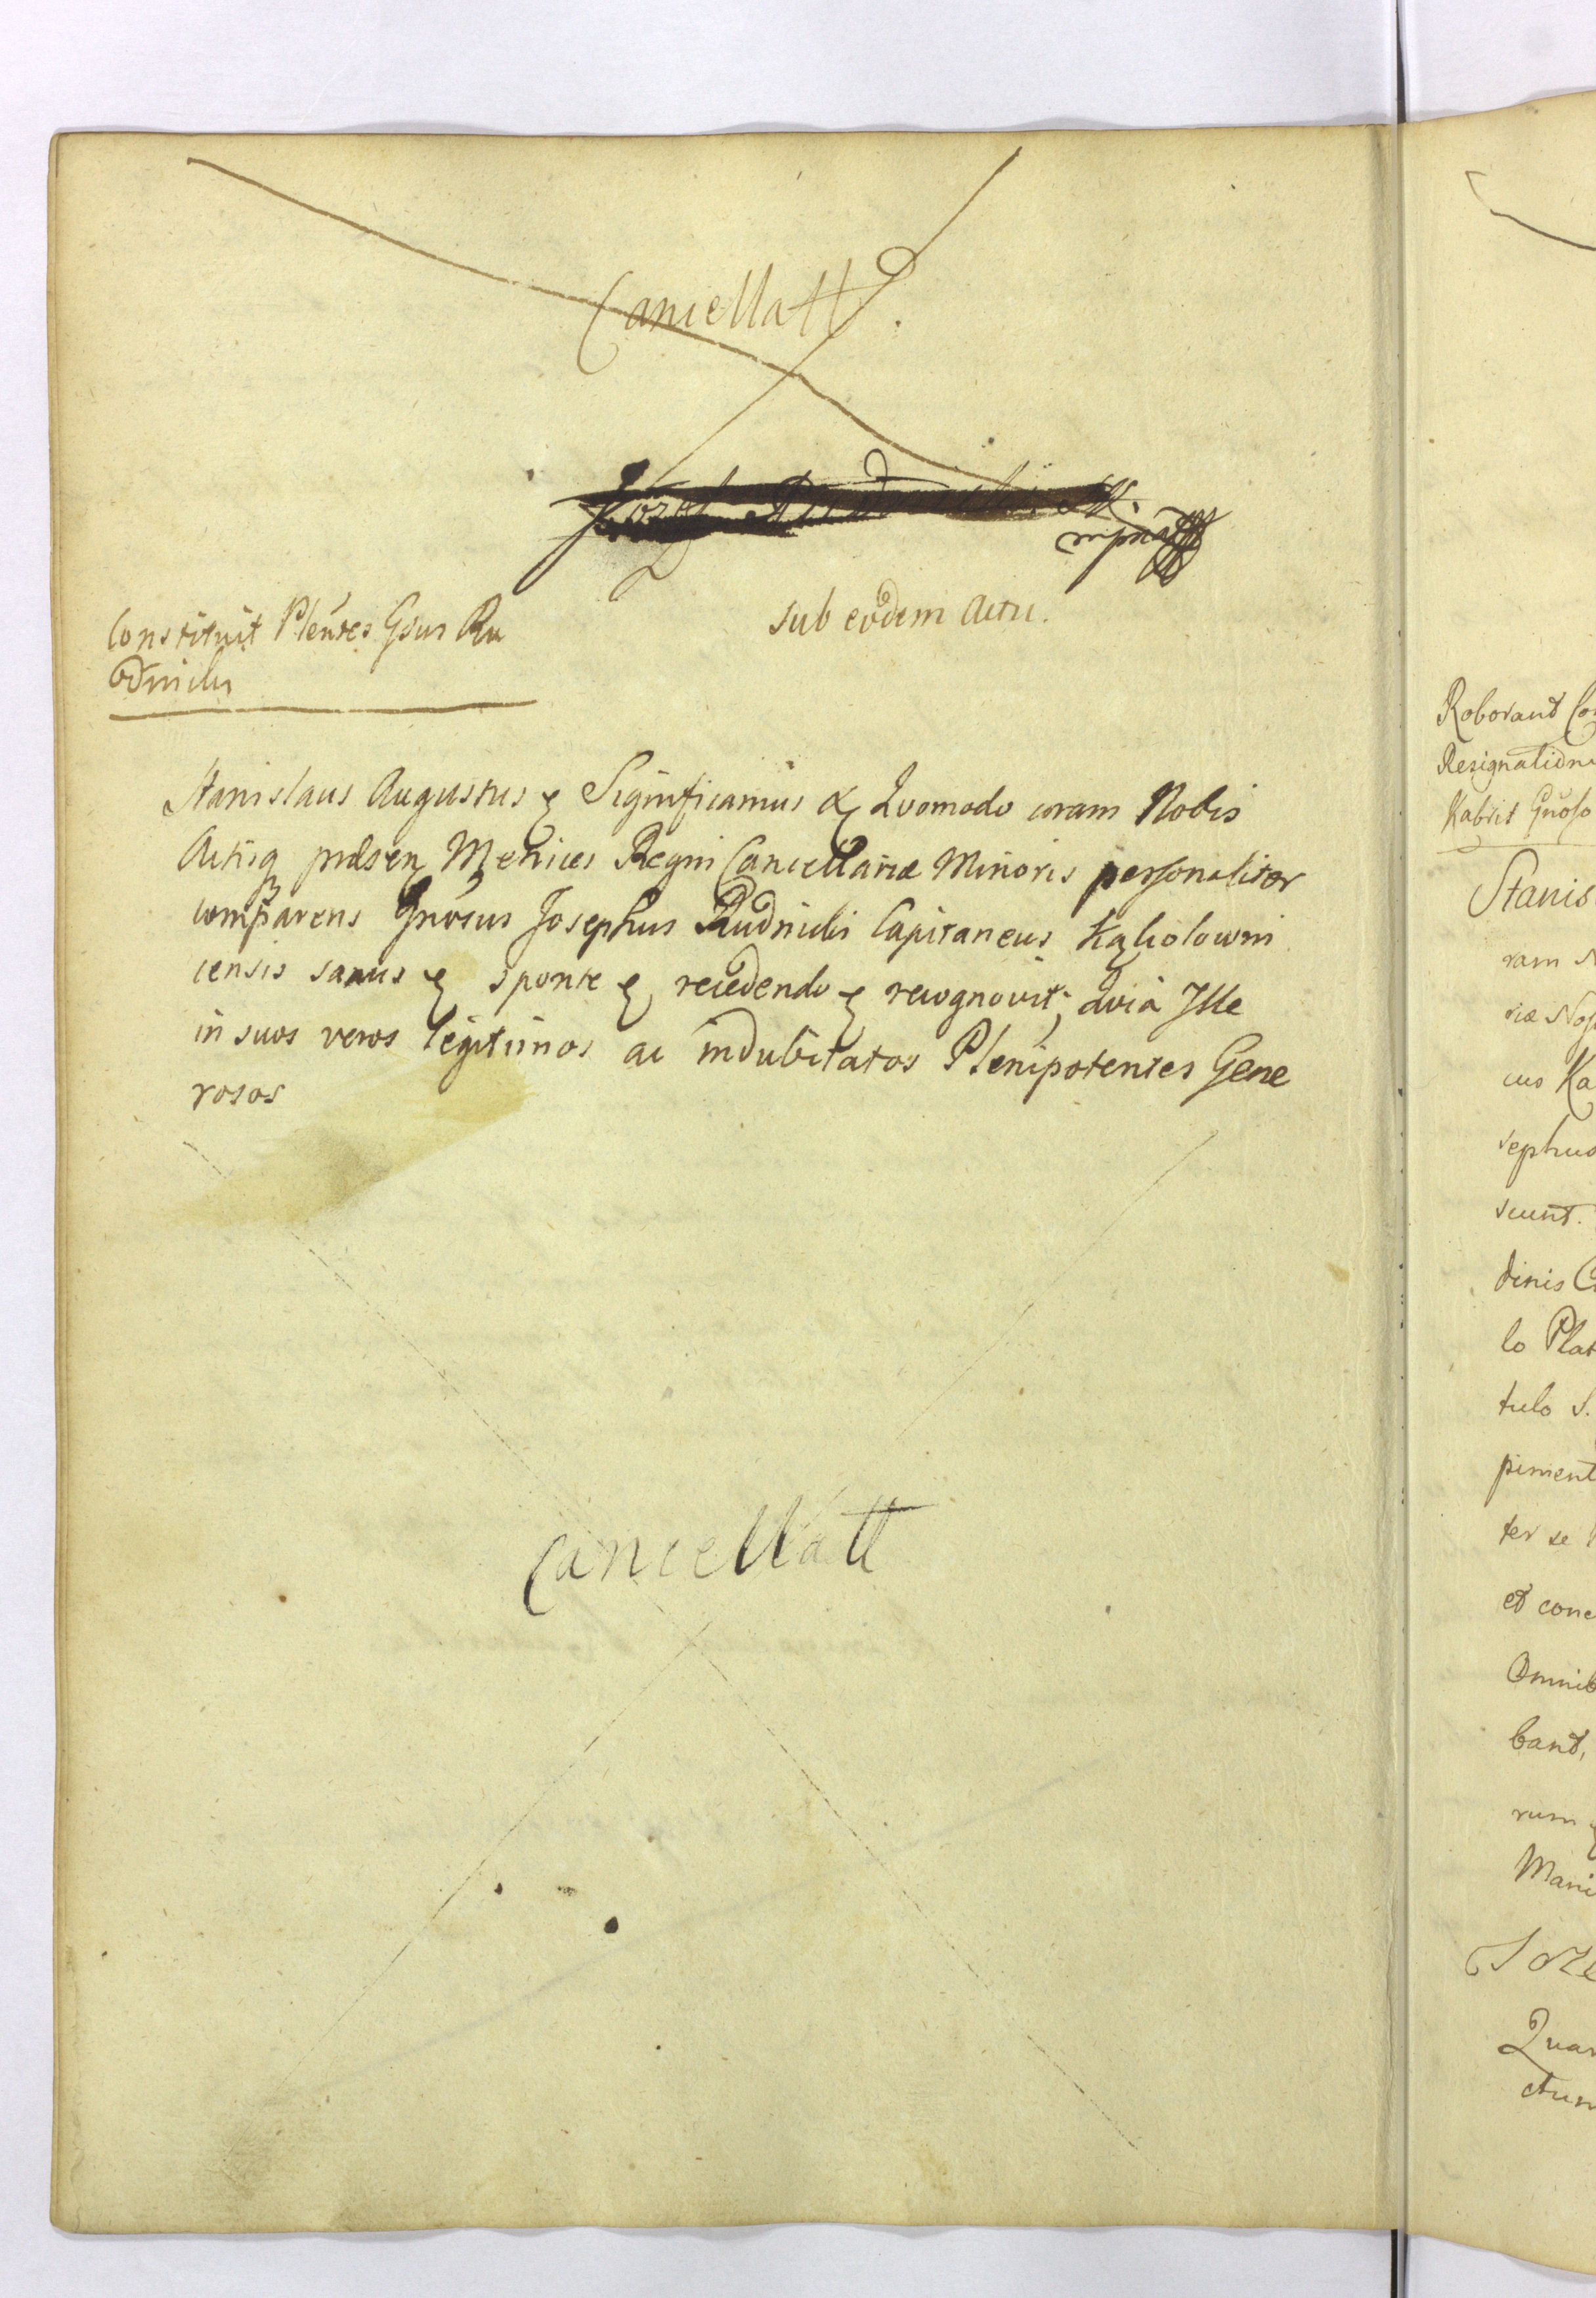 Cancellatt.
Józef Rudnicki St.
mpria
sub eodem Actu.
Constituit Plentes Gsus Ru
dnicki
Stanislaus Augustus & Significamus & Quomodo coram Nobis
Actisq prdsen Metrices Regni Cancellariæ Minoris personaliter
comparens Gnosus Josephus Rudnicki Capitaneus
censis sanus & sponte & recedendo & recognovit; Quia Ille
in suos veros legitimos ac indubitatos Plenipotentes Gene
rosos
Cancellatt
Roborant
Kabrit Gnoso
Stanis
ram
riæ
cus Ka
sephus
scunt.
dinis
lo Plat
tulo S.
piment
ter se
et conc
Omnib
bant,
rum
Mani
Quar
ctum